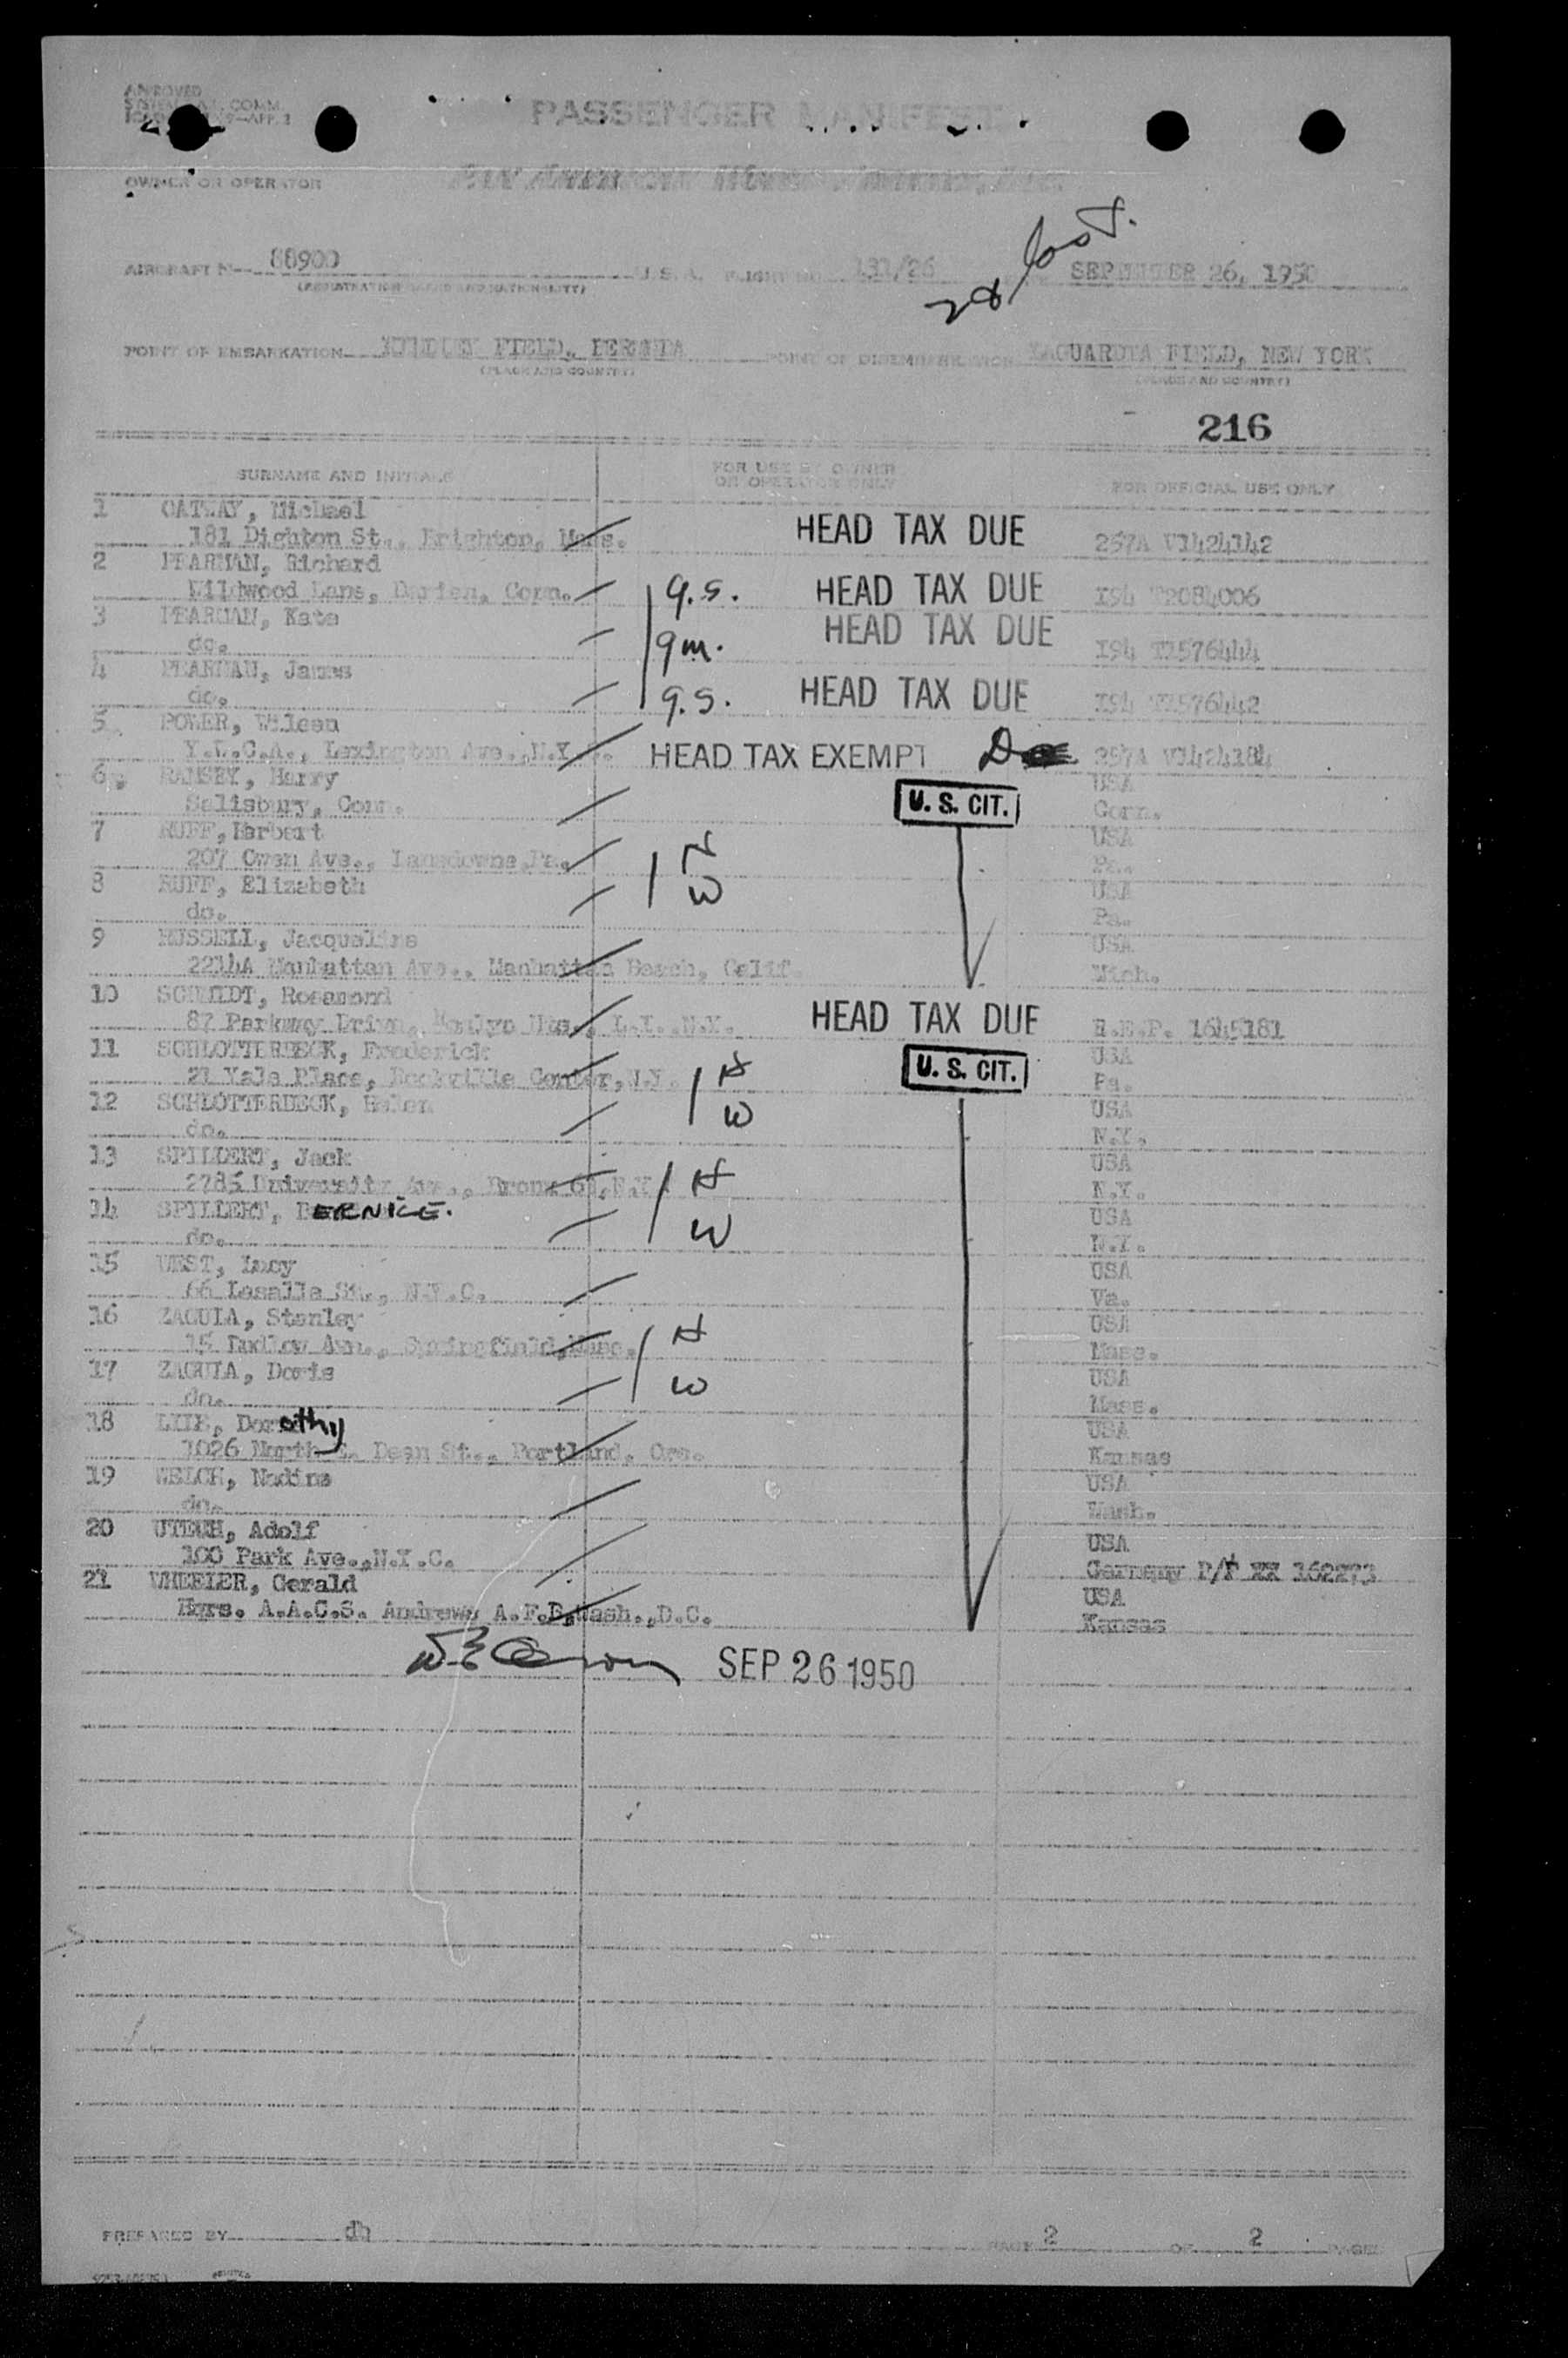 APPROVED
PASSENGER MANIFEST
OWNER OR OPERATOR
AIRCRAFT N-- 88900 U.S.A. FLIGHT NO. 131/26 SEPTEMBER 26, 1950
POINT OF EMBARKATION KINDLEY FIELD, BERMUDA POINT OF DISEMBARKATION LAGUARDIA FIELD, NEW YORK
(PLACE AND COUNTRY) (PLACE AND COUNTRY)
216
SURNAME AND INITIALS FOR USE BY OWNER OR OPERATOR ONLY FOR OFFICIAL USE ONLY
1 OATWAY, Michael HEAD TAX DUE
181 Dighton St., Brighton, Mass. 257A V1424142
2 PEARMAN, Richard
Wildwood Lane, Darien, Conn. 9.5. HEAD TAX DUE I94 T2084006
3 PEARMAN, Kate HEAD TAX DUE
do. 9m. I94 T1576444
4 PEARMAN, James
do. 9.5. HEAD TAX DUE I94 T1576442
5 POWER,
Y.W.C.A., Lexington Ave., N.Y. HEAD TAX EXEMPT 257A V1424184
6 RAMSEY, Harry USA
Salisbury, Conn. U. S. CIT. Conn.
7 RUFF, Herbert USA
207 Owen Ave., Lansdowne, Pa. H Pa.
8 RUFF, Elizabeth W USA
do. Pa.
9 RUSSELL, Jacqueline USA
2214A Manhattan Ave., Manhattan Beach, Calif. Mich.
10 SCHMIDT, Rosamond
87 Parkway Drive, L.I., N.Y. HEAD TAX DUE 1645181
11 SCHLOTTERBECK, Frederick USA
21 Yale Place, Rockville Center, N.Y. H U. S. CIT. Pa.
12 SCHLOTTERBECK, Helen W USA
do. N.Y.
13 SPILLERT, Jack USA
2785 University Ave., Bronx N.Y. H N.Y.
14 SPILLERT, BERNICE. USA
do. W N.Y.
15 WEST, Lucy USA
66 Lasalle St., N.Y.C. Va.
16 ZAGULA, Stanley USA
15 Ludlow Ave., Springfield, Mass. H Mass.
17 ZAGULA, Doris USA
do. W Mass.
18 Dorothy USA
1026 North Dean St., Portland, Ore. Kansas
19 WELCH, Nadine USA
do. Wash.
20 UTECH, Adolf USA
100 Park Ave., N.Y.C. Germany P/P XX 162273
21 WHEELER, Gerald USA
Hqrs. A.A.C.S. Andrews A.F.B, Wash., D.C. Kansas
SEP 26 1950
PREPARED BY dh PAGE 2 OF 2 PAGES